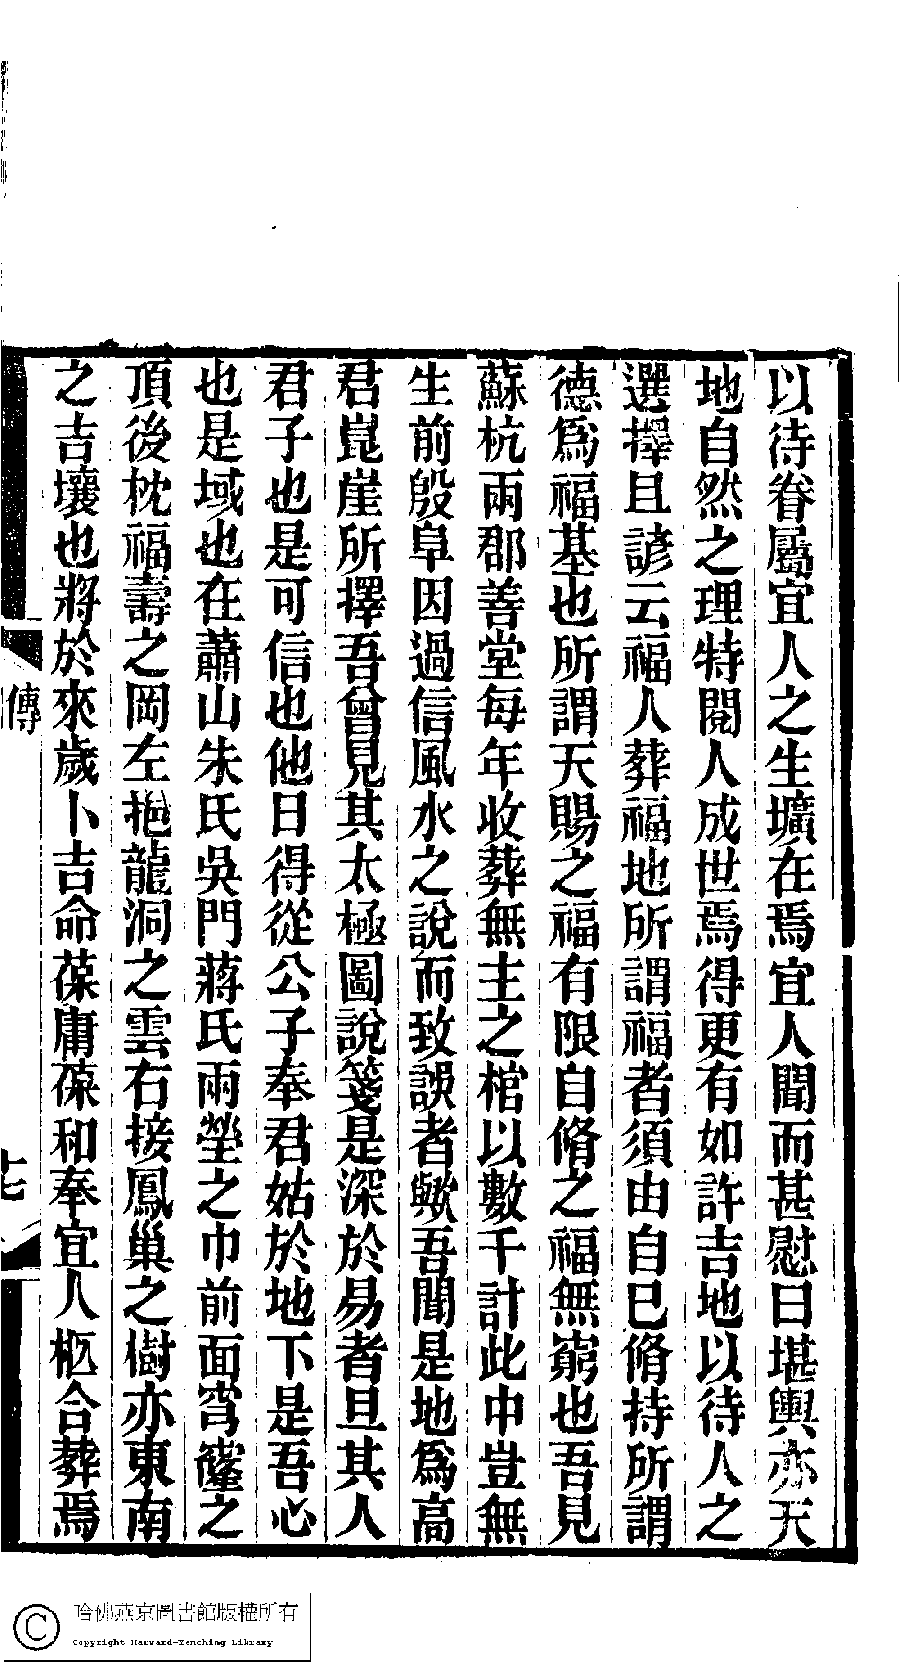 以待眷屬宜人之生壙在焉宜人聞而甚慰曰堪輿亦天
地自然之理特閱人成世焉得更有如許吉地以待人之
選擇且諺云福人葬福地所謂福者須由自已脩持所謂
德爲福基也所謂天賜之福有限自脩之福無窮也吾見
蘇杭兩郡善堂每年收葬無主之棺以數千計此中豈無
生前殷阜因過信風水之說而致誤者歟吾聞是地爲高
君崑崖所擇吾曾見其太極圖說箋是深於易者且其人
君子也是可信也他日得從公子奉君姑於地下是吾心
也是域也在蕭山朱氏吳門蔣氏兩塋之巾前面窅窿之
頂後枕福壽之岡左抱龍洞之雲右接鳳巢之樹亦東南
之吉壤也將於來歲卜吉命葆庸葆和奉宜人柩合葬焉
傳
十七
哈佛燕京圖書館版權所有
Copyright Harvard-Yenching Library